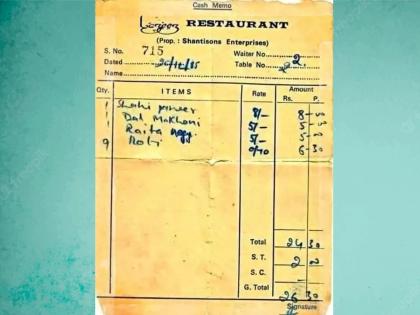 Cash Memo
Lazeez RESTAURANT
(Prop. : Shantisons Enterprises)
S. No. 715 Waiter No. 2
Dated 20/12/85 Table No. 2
Name
Qty. ITEMS Rate Amount
Rs. P.
1 Shahi paneer 8/- 8-00
1 Dal Makhani 5/- 5-00
1 Raita 5/- 5-00
9 Roti 0/70 6-30
Total 24 30
S. T. 2 00
S. C.
G. Total 26 30
Signature